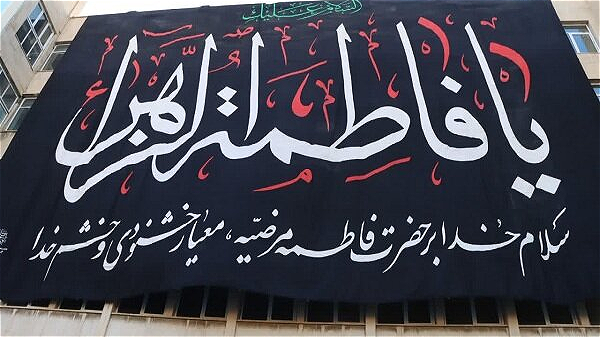 السلام علیک
یا فاطمة الزهرا
سلام خدا بر حضرت فاطمه مرضیه، معیار خشنودی و خشم خدا